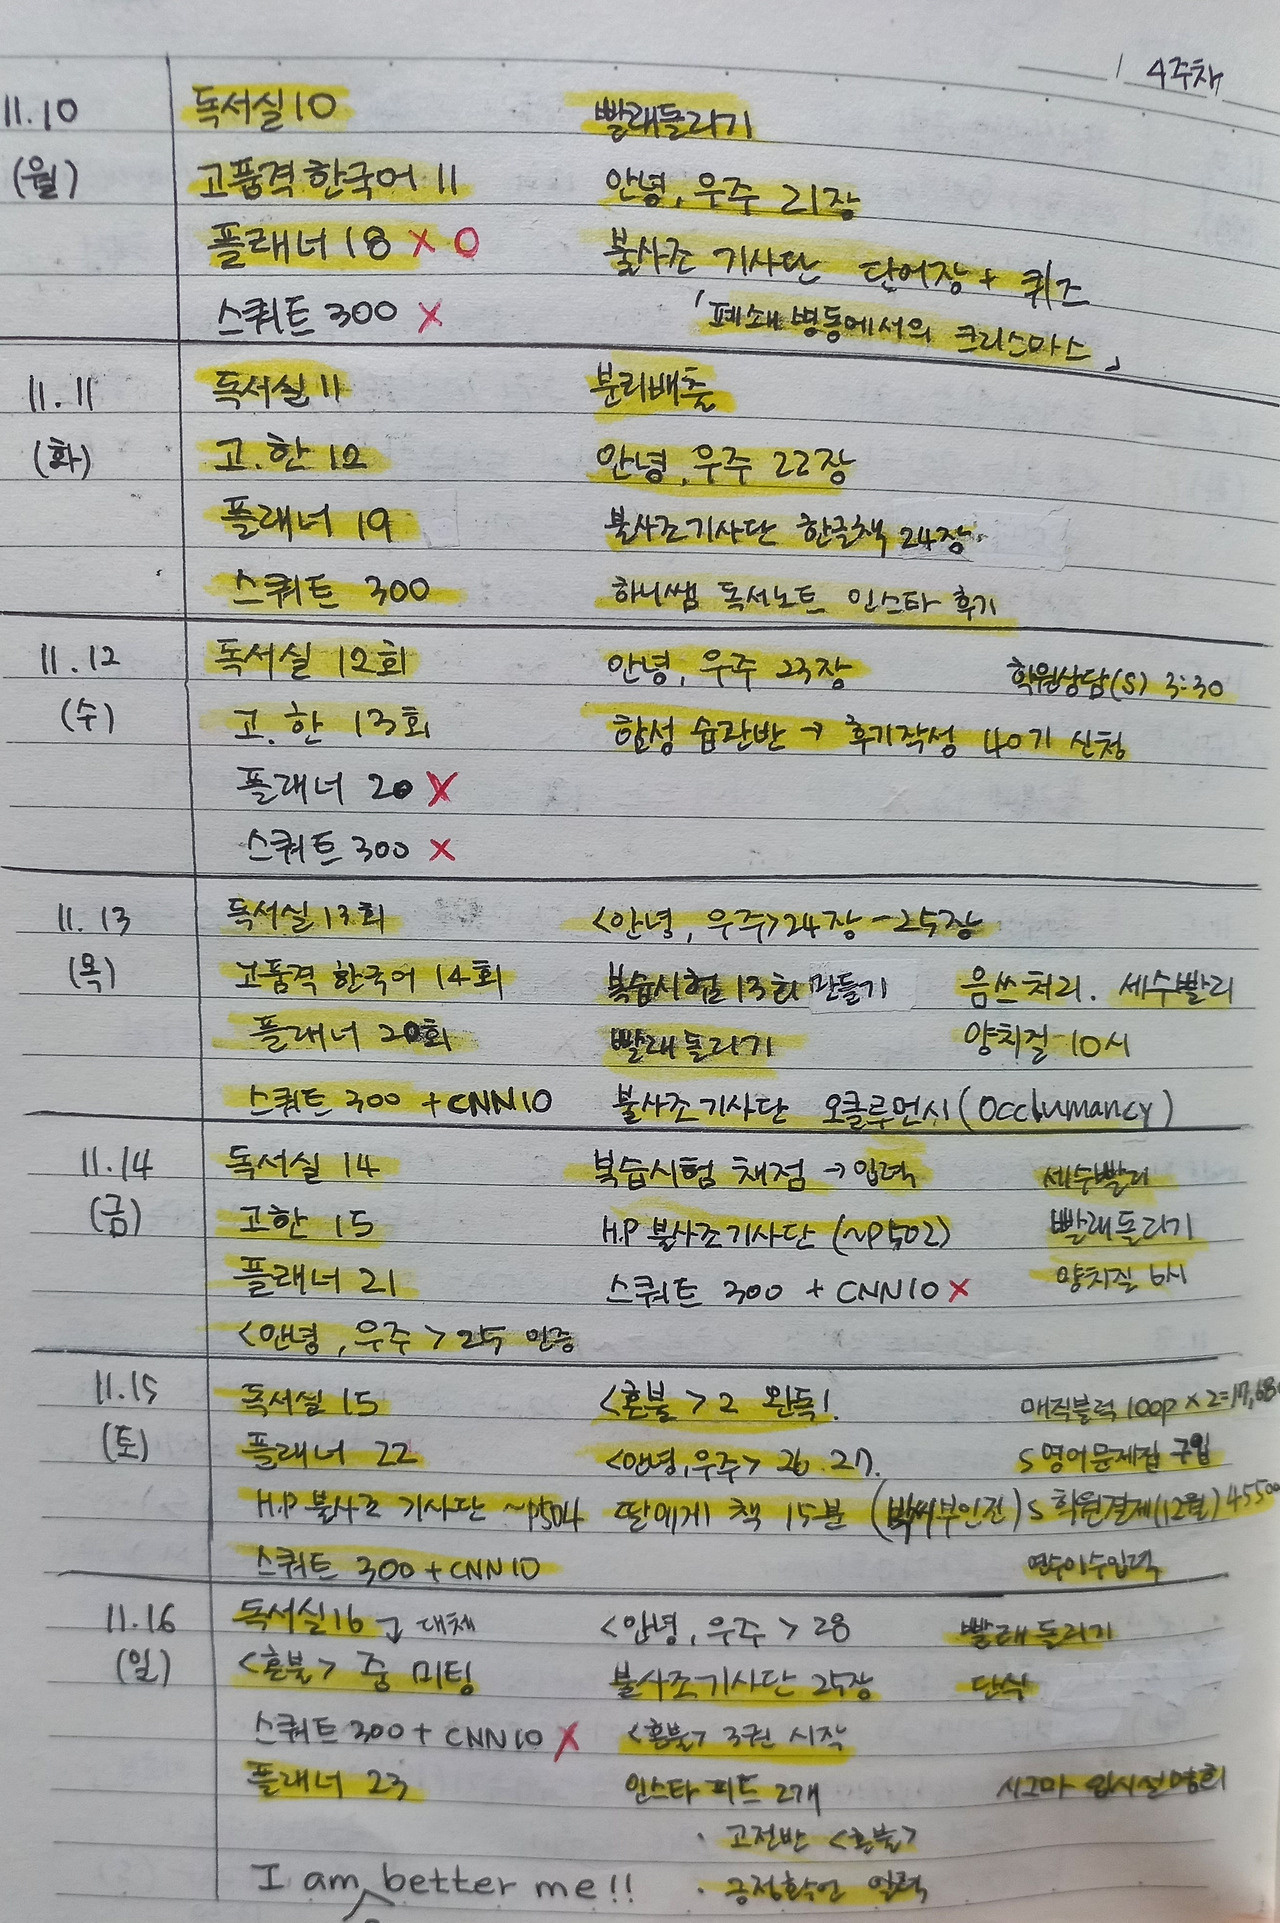 4주차
11.10 독서실 10 빨래돌리기
(월) 고품격 한국어 11 안녕, 우주 21장
플래너 18 X O 불사조 기사단 단어장 + 퀴즈
스쿼트 300 X 「폐쇄병동에서의 크리스마스」
11.11 독서실 11 분리배출
(화) 고.한 12 안녕, 우주 22장
플래너 19 불사조기사단 한글책 24장
스쿼트 300 하니쌤 독서노트 인스타 후기
11.12 독서실 12회 안녕, 우주 23장 학원상담(S) 3:30
(수) 고.한 13회 합성 습관반 → 후기작성 40기 신청
플래너 20 X
스쿼트 300 X
11.13 독서실 13회 <안녕, 우주> 24장 - 25장
(목) 고품격 한국어 14회 복습시험 13회 만들기 음쓰처리. 세수빨리
플래너 20회 빨래돌리기 양치질 10시
스쿼트 300 + CNN10 불사조기사단 오클루먼시 (Occlumancy)
11.14 독서실 14 복습시험 채점 → 입력 세수빨리
(금) 고한 15 H.P 불사조기사단 (~P502) 빨래돌리기
플래너 21 스쿼트 300 + CNN10 X 양치질 6시
<안녕, 우주> 25 인증
11.15 독서실 15 <혼불> 2 완독! 매직블럭 100p × 2 = 17,68
(토) 플래너 22 <안녕, 우주> 26. 27. S 영어문제집 구입
H.P 불사조 기사단 ~P504 딸에게 책 15분 (박씨부인전) S 학원결제(12월) 45500
스쿼트 300 + CNN10 연수이수입력
11.16 독서실 16 대체 <안녕, 우주> 28 빨래돌리기
(일) <혼불> 줌 미팅 불사조기사단 25장 단식
스쿼트 300 + CNN10 X <혼불> 3권 시작
플래너 23 인스타 피드 2개 시그마 입시설명회
· 고전반 <혼불>
I am better me!! · 긍정확언 알력